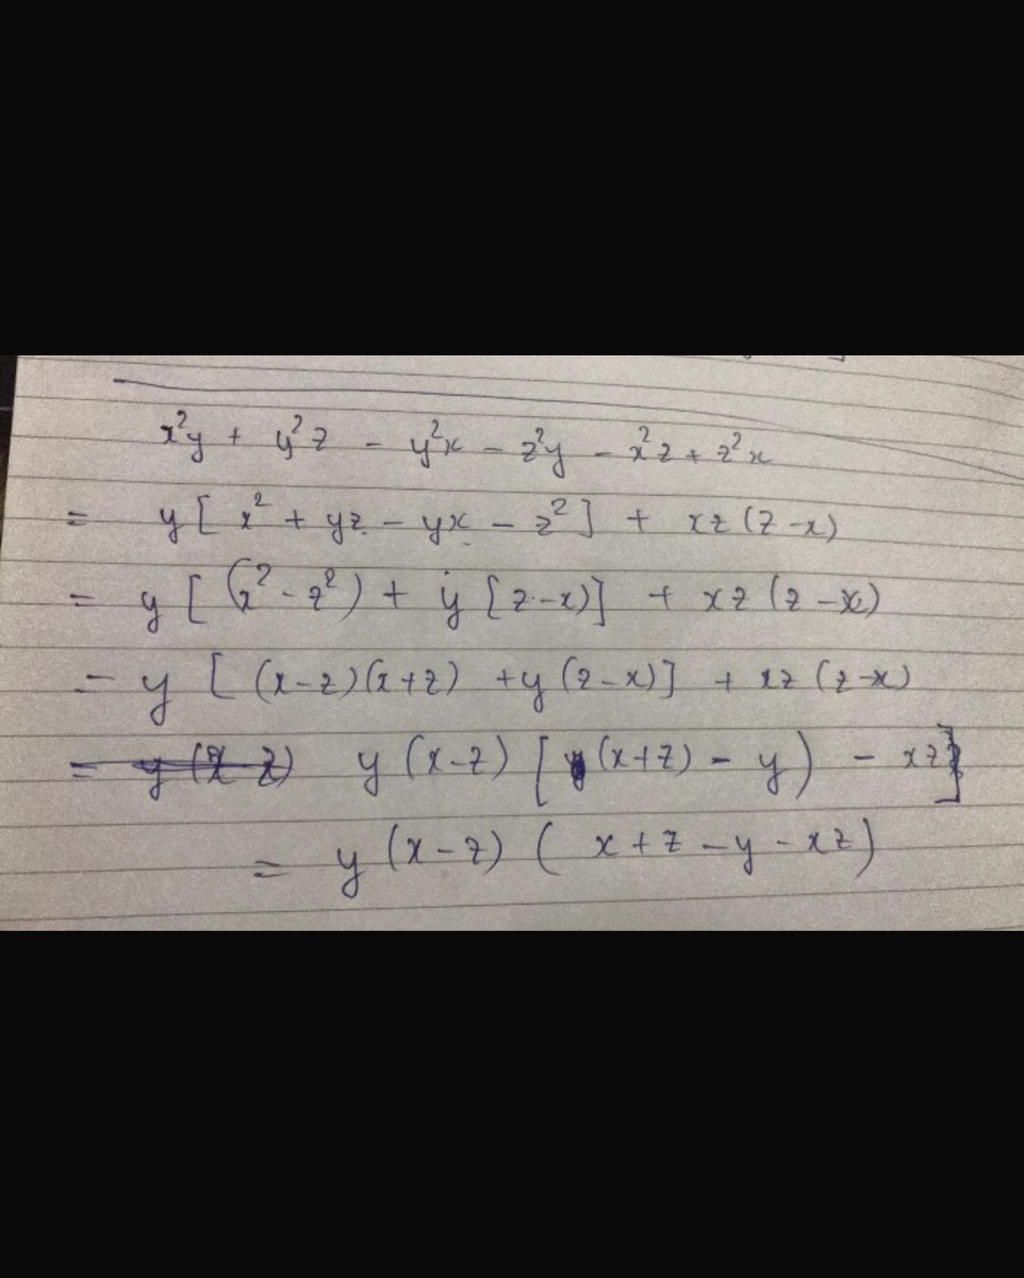 x²y + y²z - y²x - z²y - x²z + z²x
= y[ x² + yz - yx - z² ] + xz(z-x)
= y[ (x² - z²) + y[z-x)] + xz(z-x)
= y[ (x-z)(x+z) +y(z-x)] + xz(z-x)
= y(x-z) y(x-z) [(x+z) - y) - xz]
= y(x-z) ( x+z-y-xz)